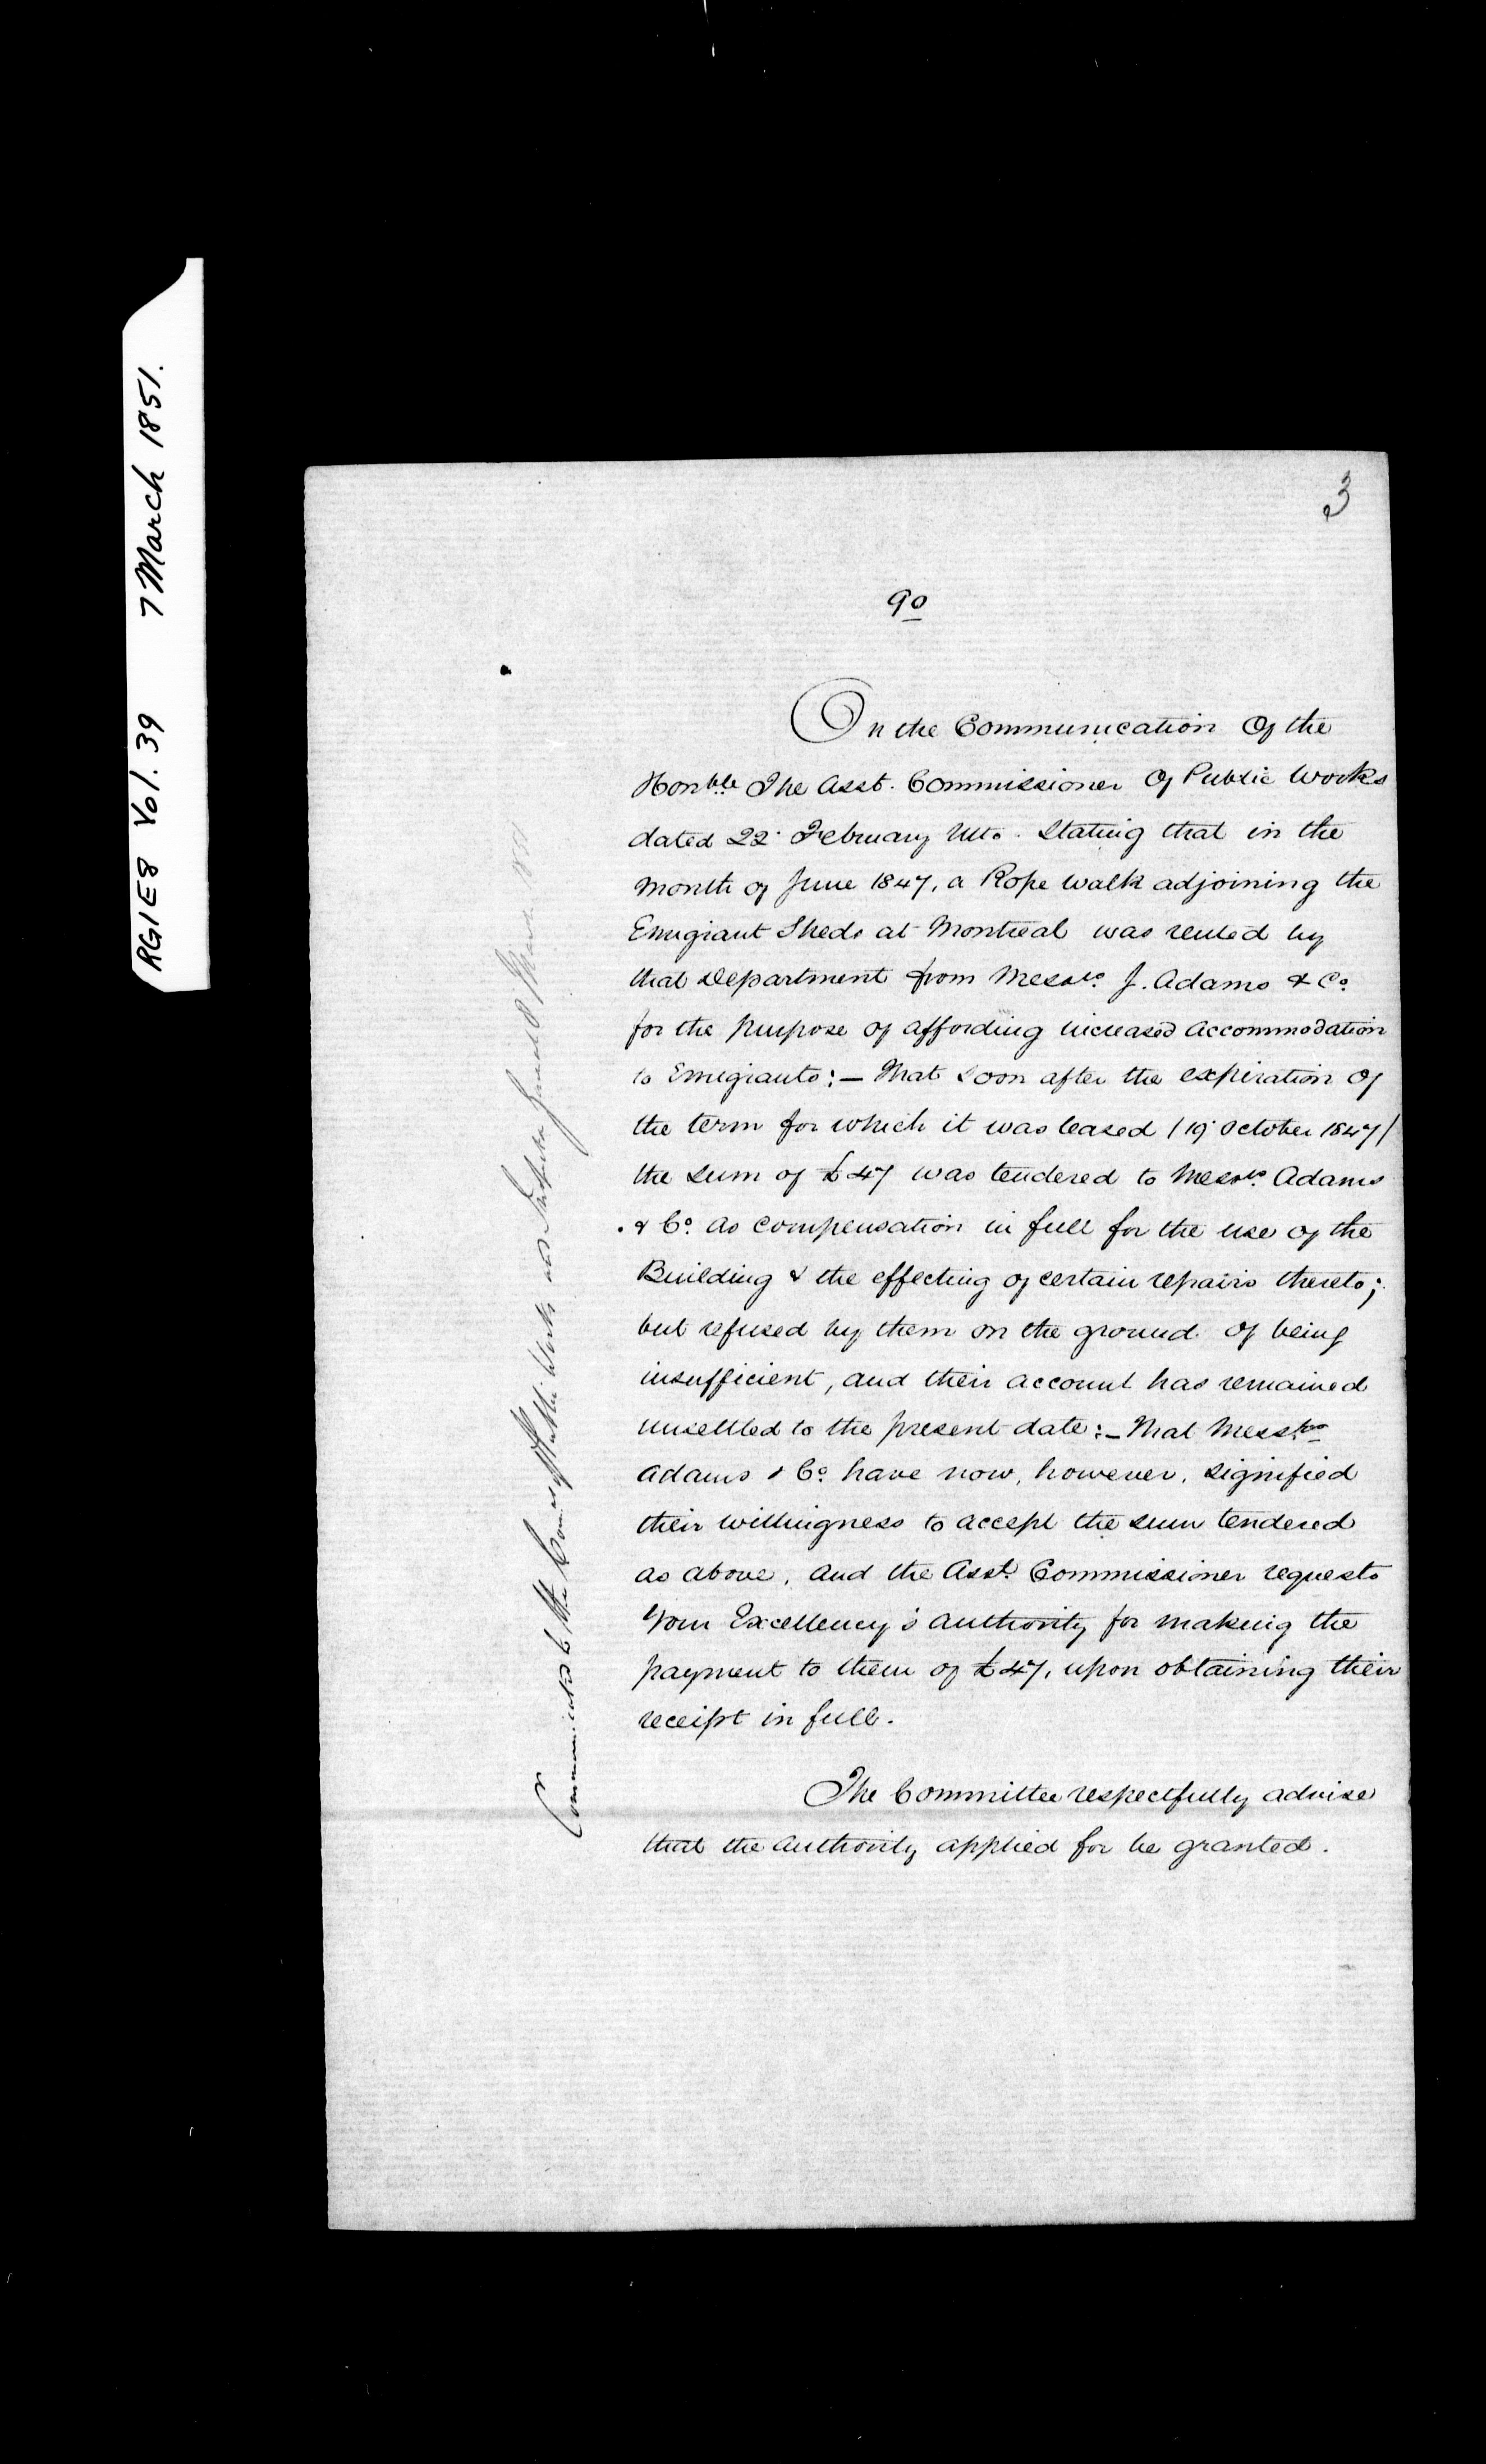 RG1E8 Vol. 39 7 March 1851.
3
9o
On the Communication Of the
Honble The Asst. Commissioner Of Public Works
dated 22 February Ulto. Stating that in the
Month of June 1847, a Rope Walk adjoining the
Emigrant Sheds at Montreal was rented by
that Department from Messrs. J. Adams & Co.
for the purpose of affording increased Accommodation
to Emigrants:— That soon after the expiration Of
the term for which it was leased (19 October 1847)
the sum of £47 was tendered to Messrs. Adams
& Co. as compensation in full for the use of the
Building & the effecting of certain repairs thereto;
but refused by them on the ground of being
insufficient, and their account has remained
unsettled to the present date:— That Messrs.
Adams & Co. have now, however, signified
their willingness to accept the sum tendered
as above, and the Asst. Commissioner requests
Your Excellency's authority for making the
payment to them of £47, upon obtaining their
receipt in full.
The Committee respectfully advise
that the authority applied for be granted.
Communicated to the Comrs. of Public Works and Inspector General 8 March 1851